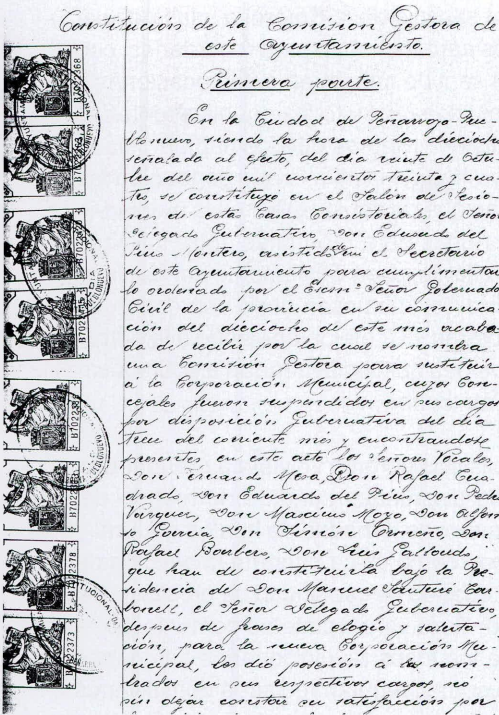 Constitución de la Comision Gestora de
este Ayuntamiento.
Primera parte.
En la Ciudad de Peñarroya-Pue-
blonuevo, siendo la hora de las dieciocho
señalada al efecto, del dia veinte de Octu-
bre del año mil novecientos treinta y cua-
tro, se constituyó en el Salón de Sesio-
nes de estas Casas Consistoriales, el Señor
Delegado Gubernativo, Don Eduardo del
Pino Montero, asistido de mi el Secretario
de este Ayuntamiento para cumplimentar
lo ordenado por el Excmº Señor Gobernado
Civil de la provincia en su comunica-
ción del dieciocho de este més acaba-
da de recibir por la cual se nombra
una Comisión Gestora para sustituir
á la Corporación Municipal, cuyos Con-
cejales fueron suspendidos en sus cargos
por disposición Gubernativa del dia
trece del corriente mes y encontrandose
presentes en este acto los Señores Vocales
Don Fernando Mesa, Don Rafael Cua-
drado, Don Eduardo del Pino, Don Pedro
Vazquez, Don Mozo, Don Alfon-
so Garcia, Don Simón Don
Rafael Barbero, Don Luis
que han de constituirla bajo la Pre-
sidencia de Don Manuel Car-
bonell, el Señor Delegado Gubernativo,
despues de frases de elogio y saluta-
ción, para la nueva Corporación Mu-
nicipal, les dió posesión á los nom-
brados en sus respectivos cargos, no
sin dejar constar su satisfacción por
B7022378
B7022373